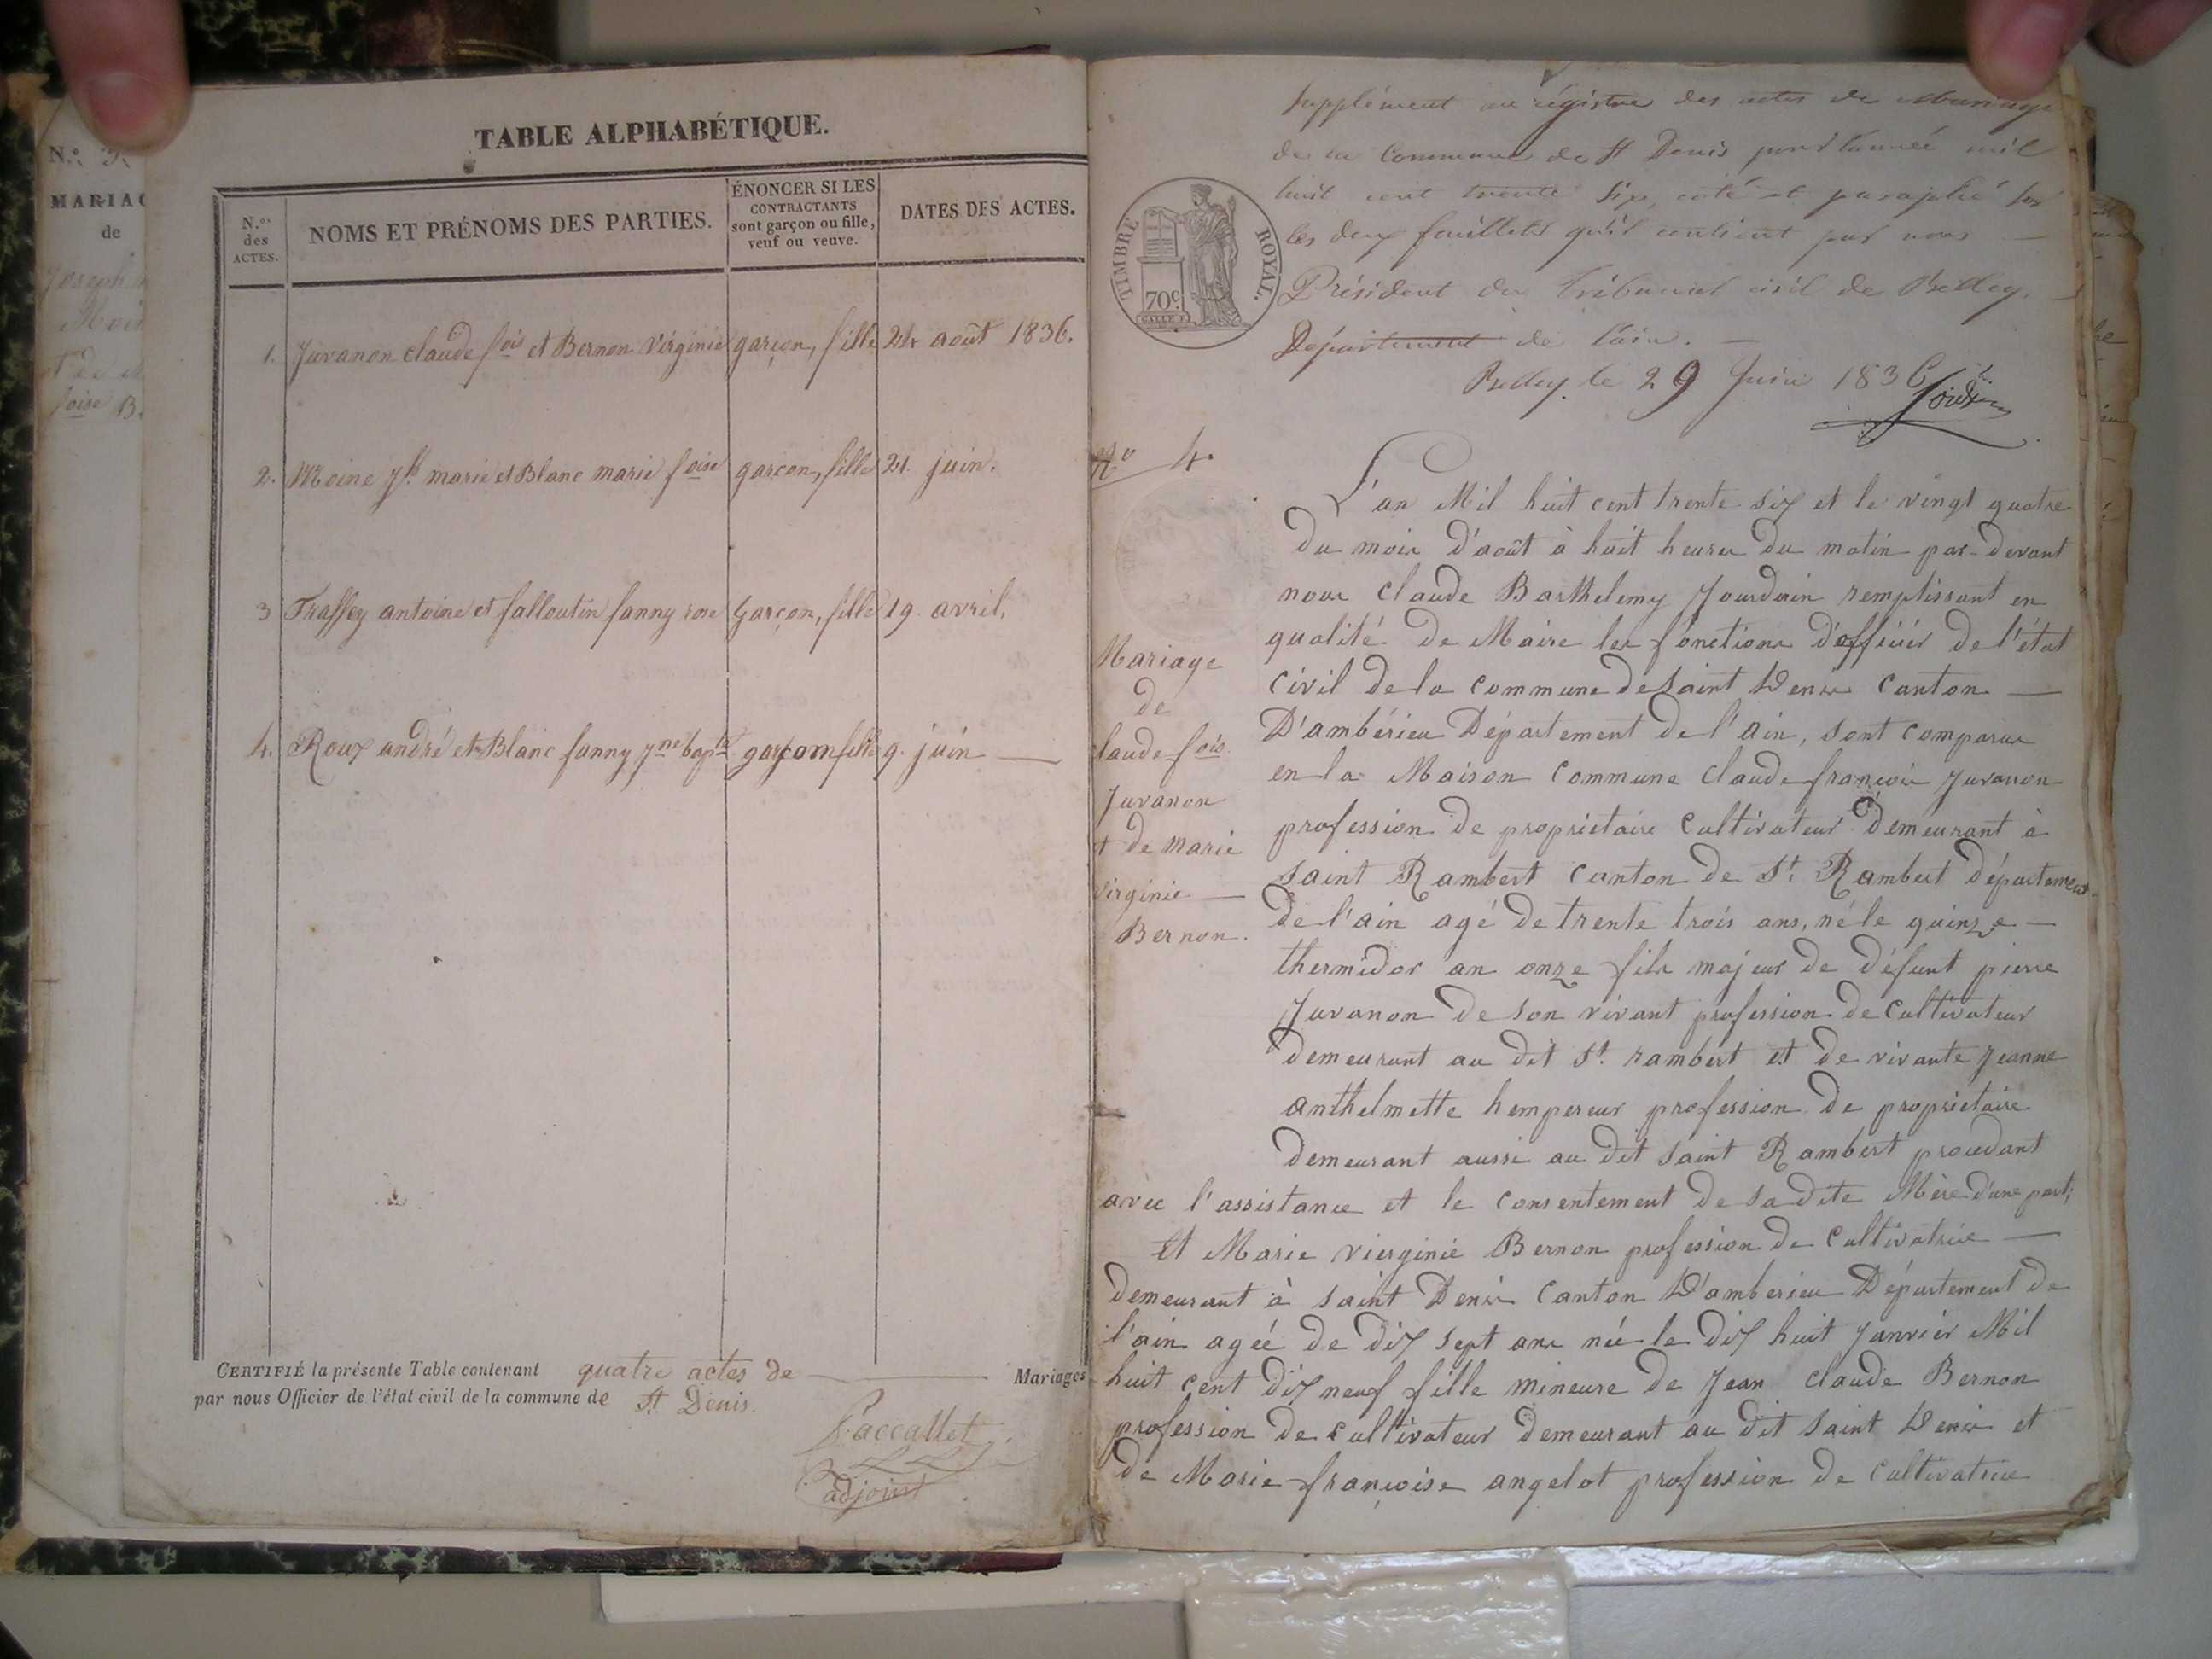 N.° 3.
MARIAG
de
Joseph
Moin
oise B.
TABLE ALPHABÉTIQUE.
N.os des ACTES.
NOMS ET PRÉNOMS DES PARTIES.
ÉNONCER SI LES CONTRACTANTS sont garçon ou fille, veuf ou veuve.
DATES DES ACTES.
1. Juvanon claude fois et Bernon Virginie garçon, fille 24 août 1836.
2. Moine Jh marie et Blanc marie foise garçon, fille 21. juin.
3 Traffey antoine et falloutin fanny rose Garçon, fille 19. avril.
4. Roux andré et Blanc fanny jne bapte garçon fille 9. juin
CERTIFIÉ la présente Table contenant quatre actes de Mariages
par nous Officier de l'état civil de la commune de St Denis.
adjoint
supplément au régistre des actes de Mariage
de la Commune de St Denis pour l'année mil
huit cent trente six, coté et paraphé sur
les deux feuillets qu'il contient par nous
Président du Tribunal civil de Belley,
Département de l'ain.
Belley, le 29 Juin 1836
TIMBRE ROYAL.
70c
No 4.
Mariage
de
laude fois.
Juvanon
t de marie
Virginie
Bernon.
L'an Mil huit cent trente six et le vingt quatre
du mois d'août à huit heures du matin par-devant
nous claude Barthelemy Jourdain remplissant en
qualité de Maire les fonctions d'officier de l'état
civil de la commune de Saint Denis canton
D'ambérieu Département de l'ain, sont comparus
en la Maison commune claude françois Juvanon
profession de proprietaire cultivateur demeurant à
Saint Rambert canton de St. Rambert département
de l'ain agé de trente trois ans, né le quinze
thermidor an onze fils majeur de défunt pierre
Juvanon de son vivant profession de cultivateur
demeurant au dit St. rambert et de vivante Jeanne
anthelmette hempereur profession de proprietaire
demeurant aussi au dit Saint Rambert procédant
avec l'assistance et le consentement de sa dite Mère d'une part;
Et Marie vierginie Bernon profession de cultivatrice
demeurant à Saint Denis Canton D'amberieu Département de
l'ain agée de dix sept ans née le dix huit Janvier Mil
huit cent dix neuf fille mineure de Jean claude Bernon
profession de cultivateur demeurant au dit Saint Denis et
de Marie françoise angelot profession de cultivatrice